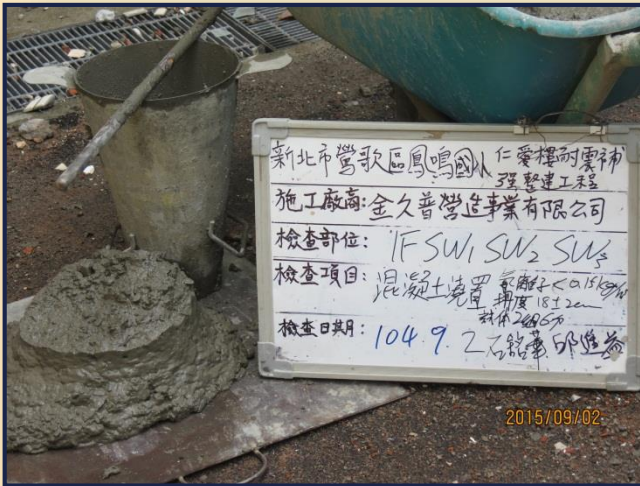 新北市鶯歌區鳳鳴國小 仁愛樓耐震補
強整建工程
施工廠商:金久晉營造事業有限公司
檢查部位: 1F SW1 SW2 SW3
檢查項目: 混凝土澆置 氯離子<0.15kg/m³
坍度 18±2cm
試体2組6力
檢查日期: 104. 9. 2 石銘華 邱進益
2015/09/02